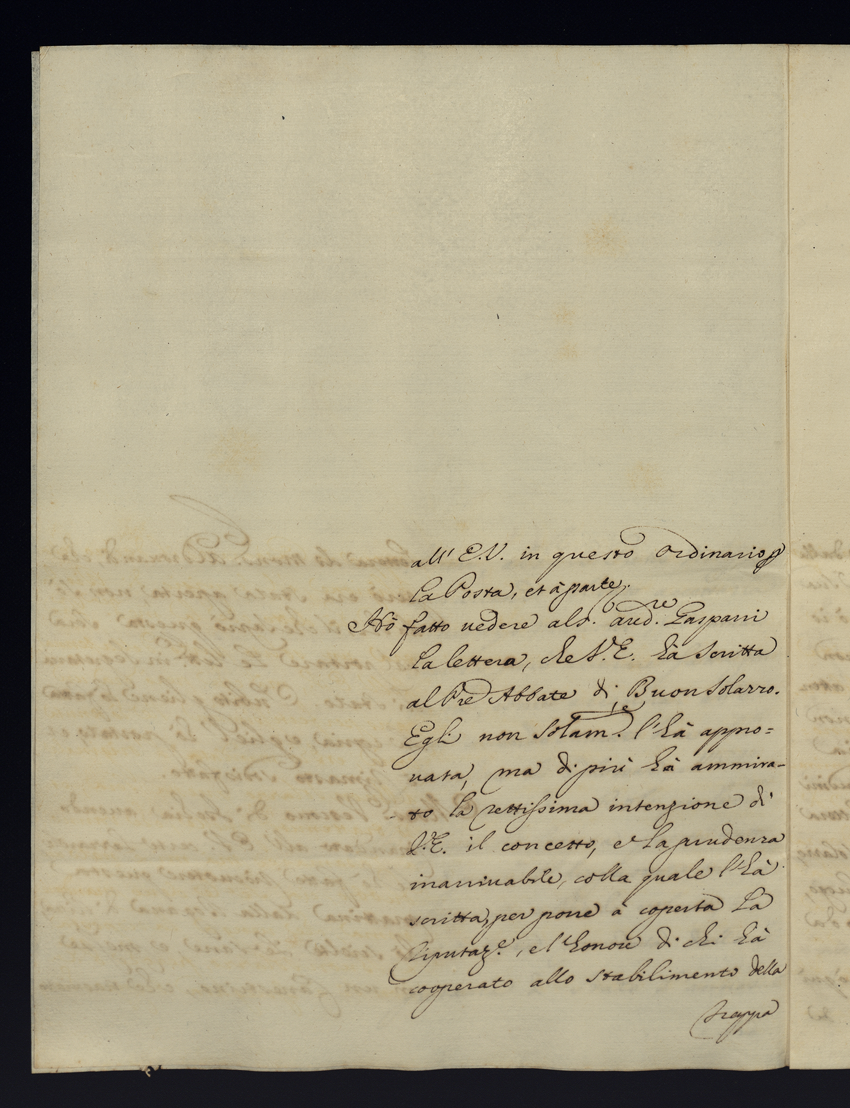 all' E.V. in questo ordinario p
la Posta, et à parte.
Hò fatto vedere al S.r aud.re Gaspari
la lettera, che V.E. hà scritta
al Pre Abbate di Buonsolazzo.
Egli non Solam.te l'hà appro=
vata, ma di più hà ammira=
to la rettissima intenzione di
V.E. il concetto, e la prudenza
inarrivabile, colla quale l'hà
scritta, per porre à coperta la
riputaz.e, e l'honore di chi hà
cooperato allo stabilimento della
Trappa